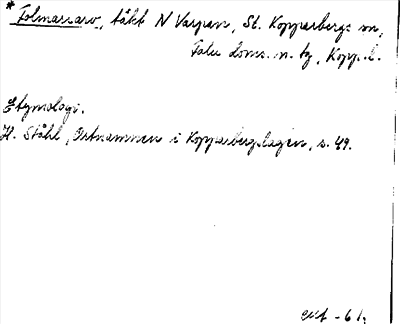 * Folmarsarv, täkt N Varpan, St. Kopparbergs sn,
Falu doms. n. tg, Kopp. l.
Etymologi.
H. Ståhl, Ortnamnen i Kopparbergslagen, s. 49.
- 61